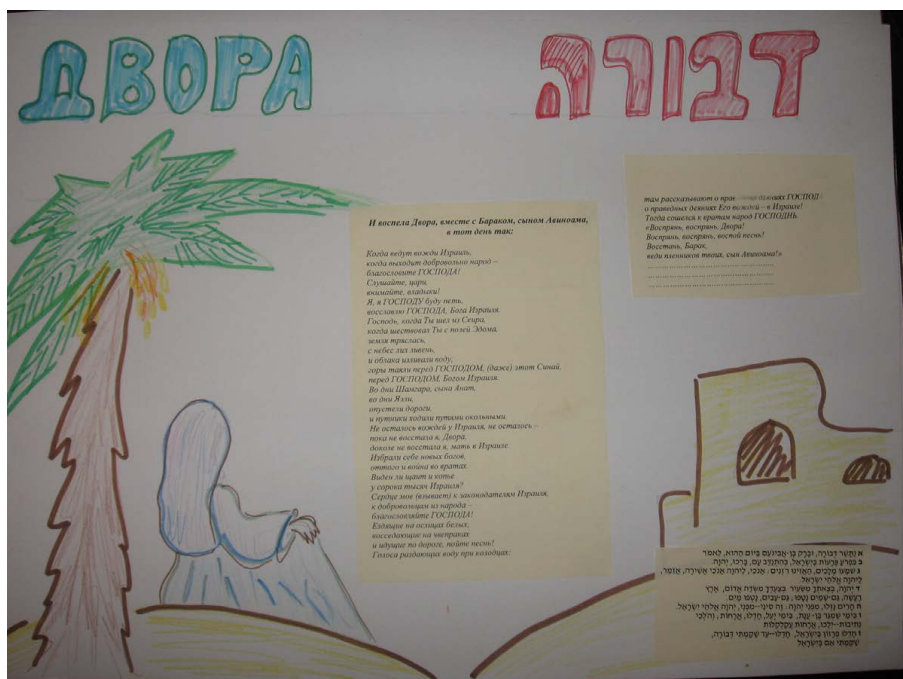 ДВОРА
דבורה
И воспела Двора, вместе с Бараком, сыном Авиноама,
в тот день так:
Когда ведут вожди Израиль,
когда выходит добровольно народ –
благословите ГОСПОДА!
Слушайте, цари,
внимайте, владыки!
Я, я ГОСПОДУ буду петь,
восславлю ГОСПОДА, Бога Израиля.
Господь, когда Ты шел из Сеира,
когда шествовал Ты с полей Эдома,
земля тряслась,
с небес лил ливень,
и облака изливали воду;
горы таяли перед ГОСПОДОМ, (даже) этот Синай,
перед ГОСПОДОМ, Богом Израиля.
Во дни Шамгара, сына Анат,
во дни Яэли,
опустели дороги,
и путники ходили путями окольными.
Не осталось вождей у Израиля, не осталось –
пока не восстала я, Двора,
доколе не восстала я, мать в Израиле.
Избрали себе новых богов,
оттого и война во вратах.
Виден ли щит и копье
у сорока тысяч Израиля?
Сердце мое (взывает) к законодателям Израиля,
к добровольцам из народа –
благословляйте ГОСПОДА!
Ездящие на ослицах белых,
восседающие на чепраках
и идущие по дороге, пойте песнь!
Голоса раздающих воду при колодцах:
там рассказывают о деяниях ГОСПОД
о праведных деяниях Его вождей – в Израиле!
Тогда сошелся к вратам народ ГОСПОДНЬ.
«Воспрянь, воспрянь, Двора!
Воспрянь, воспрянь, воспой песнь!
Восстань, Барак,
веди пленников твоих, сын Авиноама!»
א וַתָּשַׁר דְּבוֹרָה, וּבָרָק בֶּן-אֲבִינֹעַם, בַּיּוֹם הַהוּא, לֵאמֹר
ב בִּפְרֹעַ פְּרָעוֹת בְּיִשְׂרָאֵל, בְּהִתְנַדֵּב עָם, בָּרְכוּ, יְהוָה.
ג שִׁמְעוּ מְלָכִים, הַאֲזִינוּ רֹזְנִים: אָנֹכִי, לַיהוָה אָנֹכִי אָשִׁירָה, אֲזַמֵּר,
לַיהוָה אֱלֹהֵי יִשְׂרָאֵל.
ד יְהוָה, בְּצֵאתְךָ מִשֵּׂעִיר בְּצַעְדְּךָ מִשְּׂדֵה אֱדוֹם, אֶרֶץ
רָעָשָׁה, גַּם-שָׁמַיִם נָטָפוּ; גַּם-עָבִים, נָטְפוּ מָיִם.
ה הָרִים נָזְלוּ, מִפְּנֵי יְהוָה: זֶה סִינַי--מִפְּנֵי, יְהוָה אֱלֹהֵי יִשְׂרָאֵל.
ו בִּימֵי שַׁמְגַּר בֶּן-עֲנָת, בִּימֵי יָעֵל, חָדְלוּ, אֳרָחוֹת; וְהֹלְכֵי
נְתִיבוֹת--יֵלְכוּ, אֳרָחוֹת עֲקַלְקַלּוֹת
ז חָדְלוּ פְרָזוֹן בְּיִשְׂרָאֵל, חָדֵלּוּ--עַד שַׁקַּמְתִּי דְּבוֹרָה,
שַׁקַּמְתִּי אֵם בְּיִשְׂרָאֵל